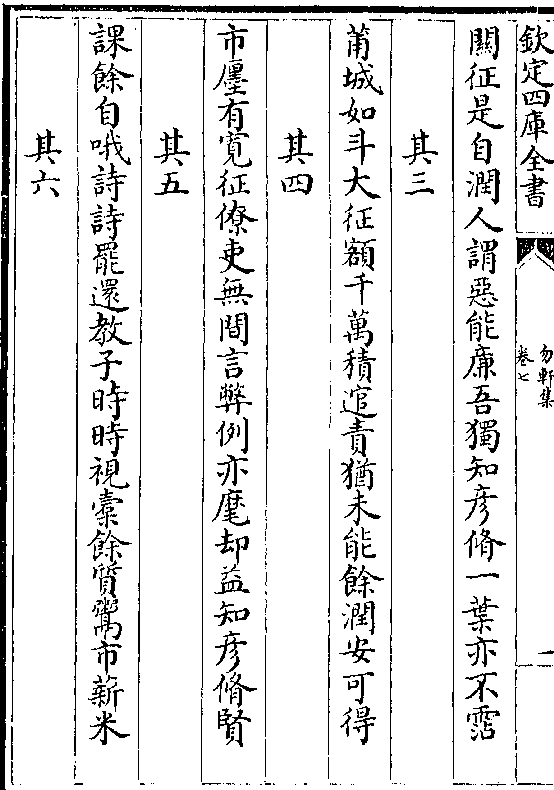 欽定四庫全書
勿軒集
卷七
一
關征是自潤人謂惡能廉吾獨知彥脩一葉亦不霑
其三
莆城如斗大征額千萬積逭責猶未能餘潤安可得
其四
市廛有寛征僚吏無間言弊例亦麾却益知彦脩賢
其五
課餘自哦詩詩罷還教子時時視槖餘質鬻市薪米
其六